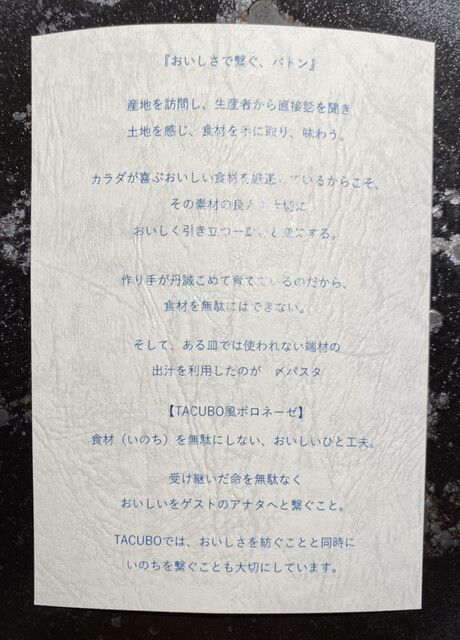 『おいしさで繋ぐ、バトン』
産地を訪問し、生産者から直接話を聞き
土地を感じ、食材を手に取り、味わう。
カラダが喜ぶおいしい食材を厳選しているからこそ、
その素材の良さを大切に
おいしく引き立つ一皿へと変化する。
作り手が丹誠こめて育てているのだから、
食材を無駄にはできない。
そして、ある皿では使われない端材の
出汁を利用したのが 〆パスタ
【TACUBO風ボロネーゼ】
食材（いのち）を無駄にしない、おいしいひと工夫。
受け継いだ命を無駄なく
おいしいをゲストのアナタへと繋ぐこと。
TACUBOでは、おいしさを紡ぐことと同時に
いのちを繋ぐことも大切にしています。